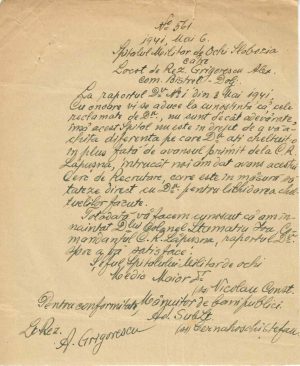 No 561
1941, Mai 6.
Spitalul Militar de Ochi Slobozia
către
Locot. de Rez. Grigorescu Alex.
com. Bistreț - Dolj
La raportul Dv. No 1 din 3 Mai 1941
Cu onoare vi se aduce la cunoștință că cele
reclamate de Dv. nu sunt decât adevărate,
însă acest Spital nu este în drept de a vă a-
chita diferența pe care Dv. ați cheltuit-o
în plus față de avansul primit de la C.R.
Lăpușna, întrucât noi am dat avans acestui
Cerc de Recrutare, care este în măsură să
trateze direct cu Dv. pentru lichidarea chel-
tuelilor făcute.
Totodată vă facem cunoscut că am în-
aintat D-lui Colonel Stamatiu Co-
mandantul C.R. Lăpușna, raportul Dv.
spre a vă satisface.
Șeful Spitalului Militar de ochi
Medic Maior
(ss) Nicolau Const.
Pentru conformitate, Mânuitor de bani publici
Ad. Sublt.
Lt. Rez. (ss) Cernahoschi Ștefan
A. Grigorescu